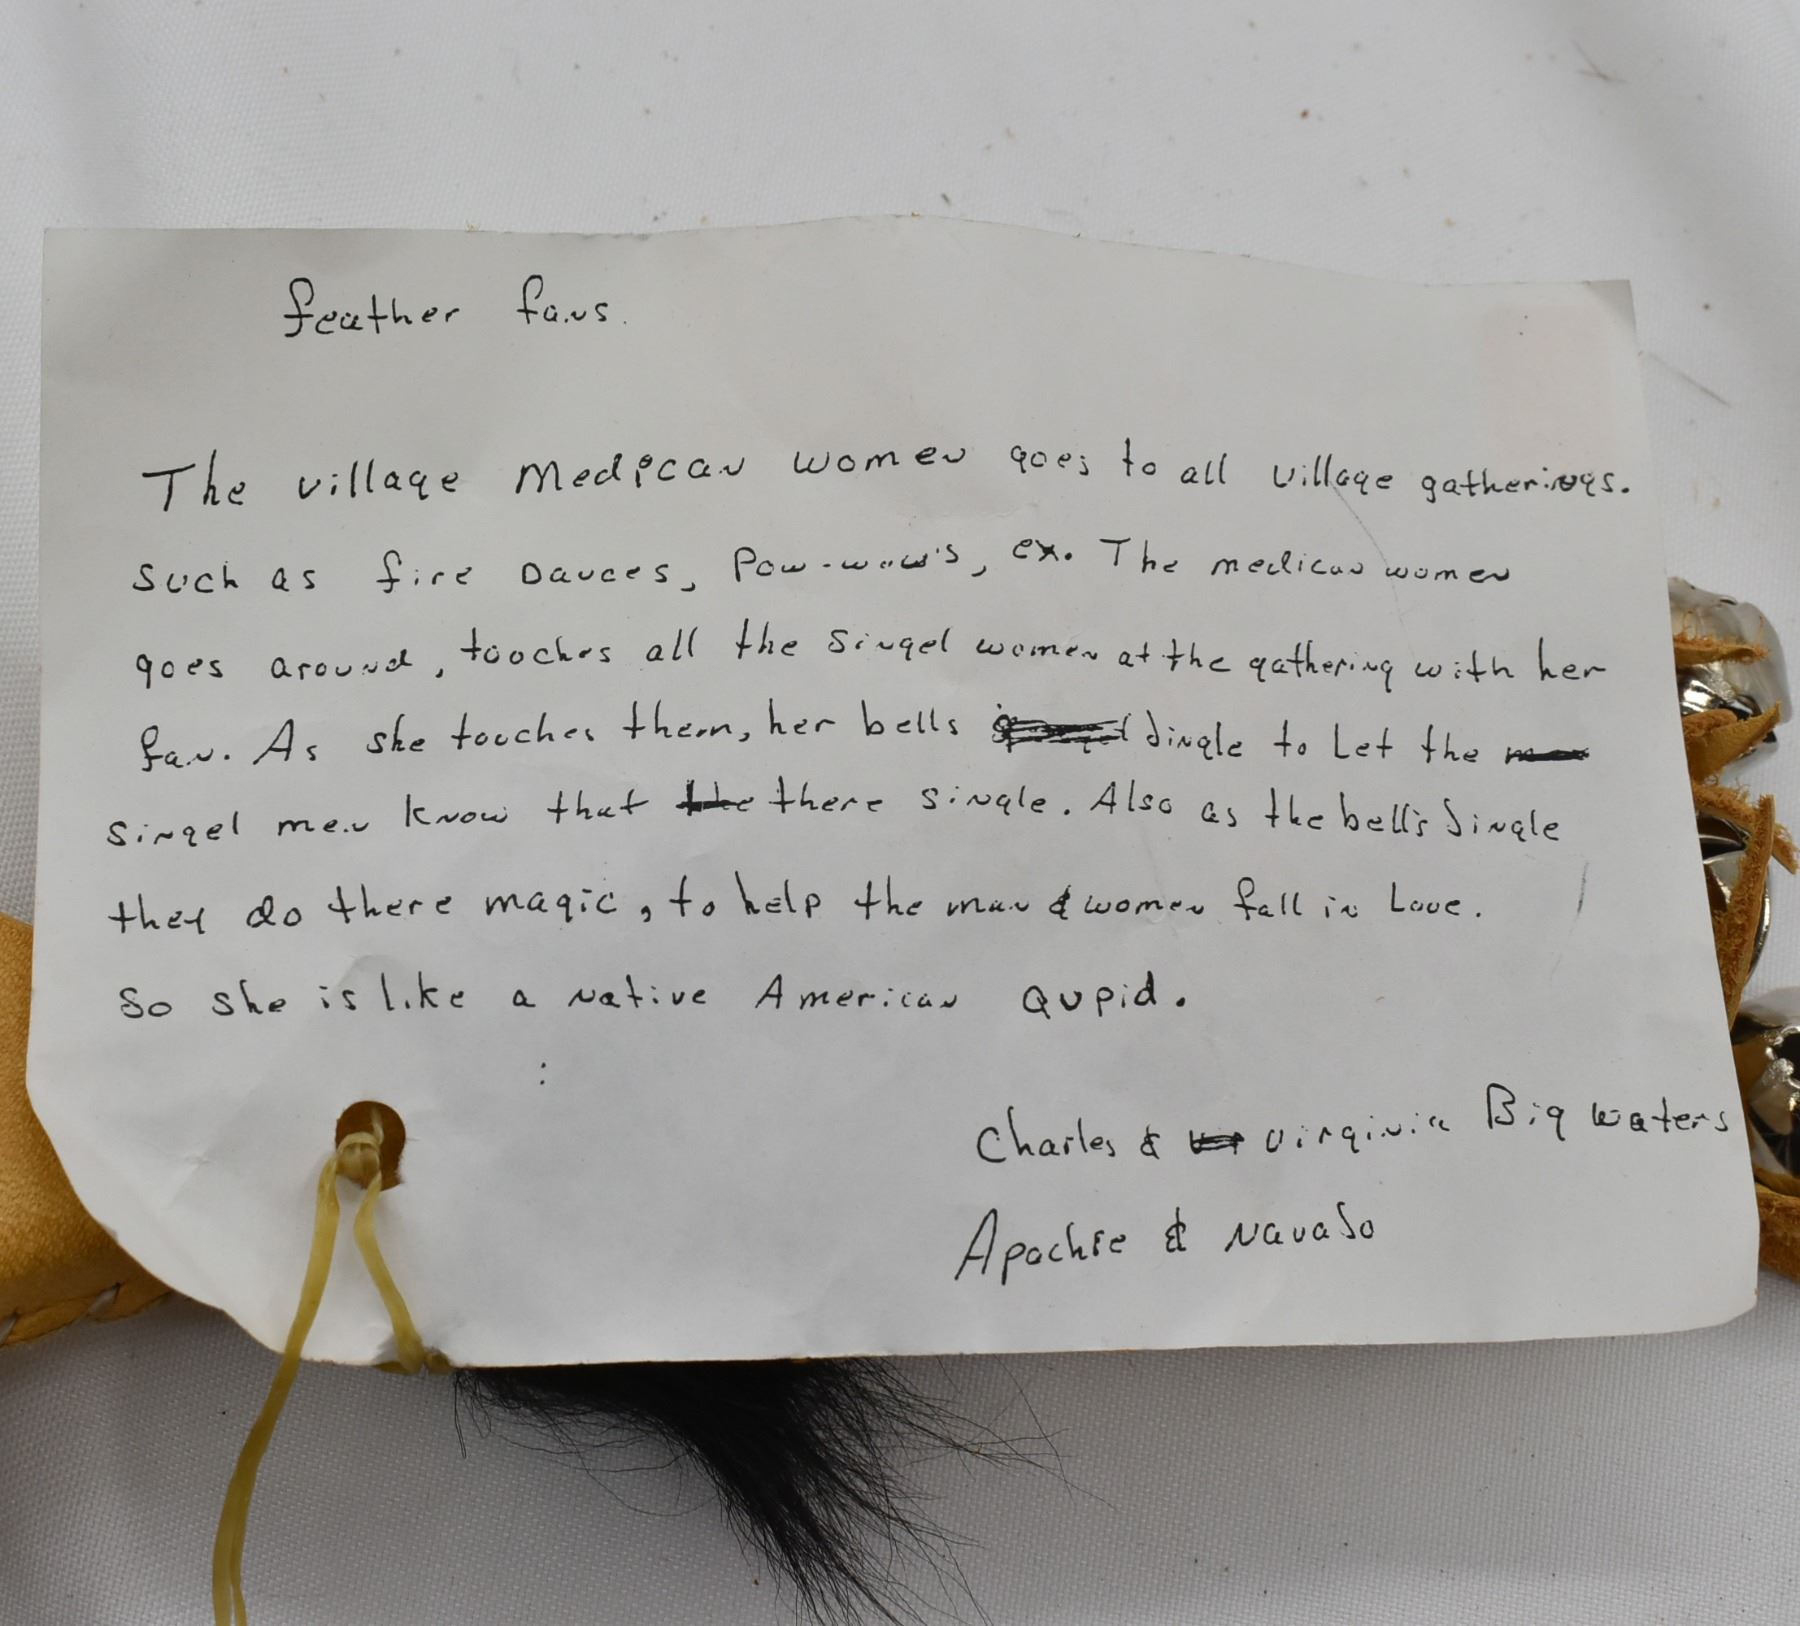 feather fans.
The village Medican women goes to all village gatherings.
such as fire Dances, Pow-wow's, ex. The medican women
goes around, tooches all the singel women at the gathering with her
fan. As she tooches them, her bells Jingle to Let the
singel men know that there single. Also as the bell's Jingle
they do there magic, to help the man & women fall in Love.
So she is like a Native American Qupid.
Charles & Virginia Big waters
Apachie & NavaJo